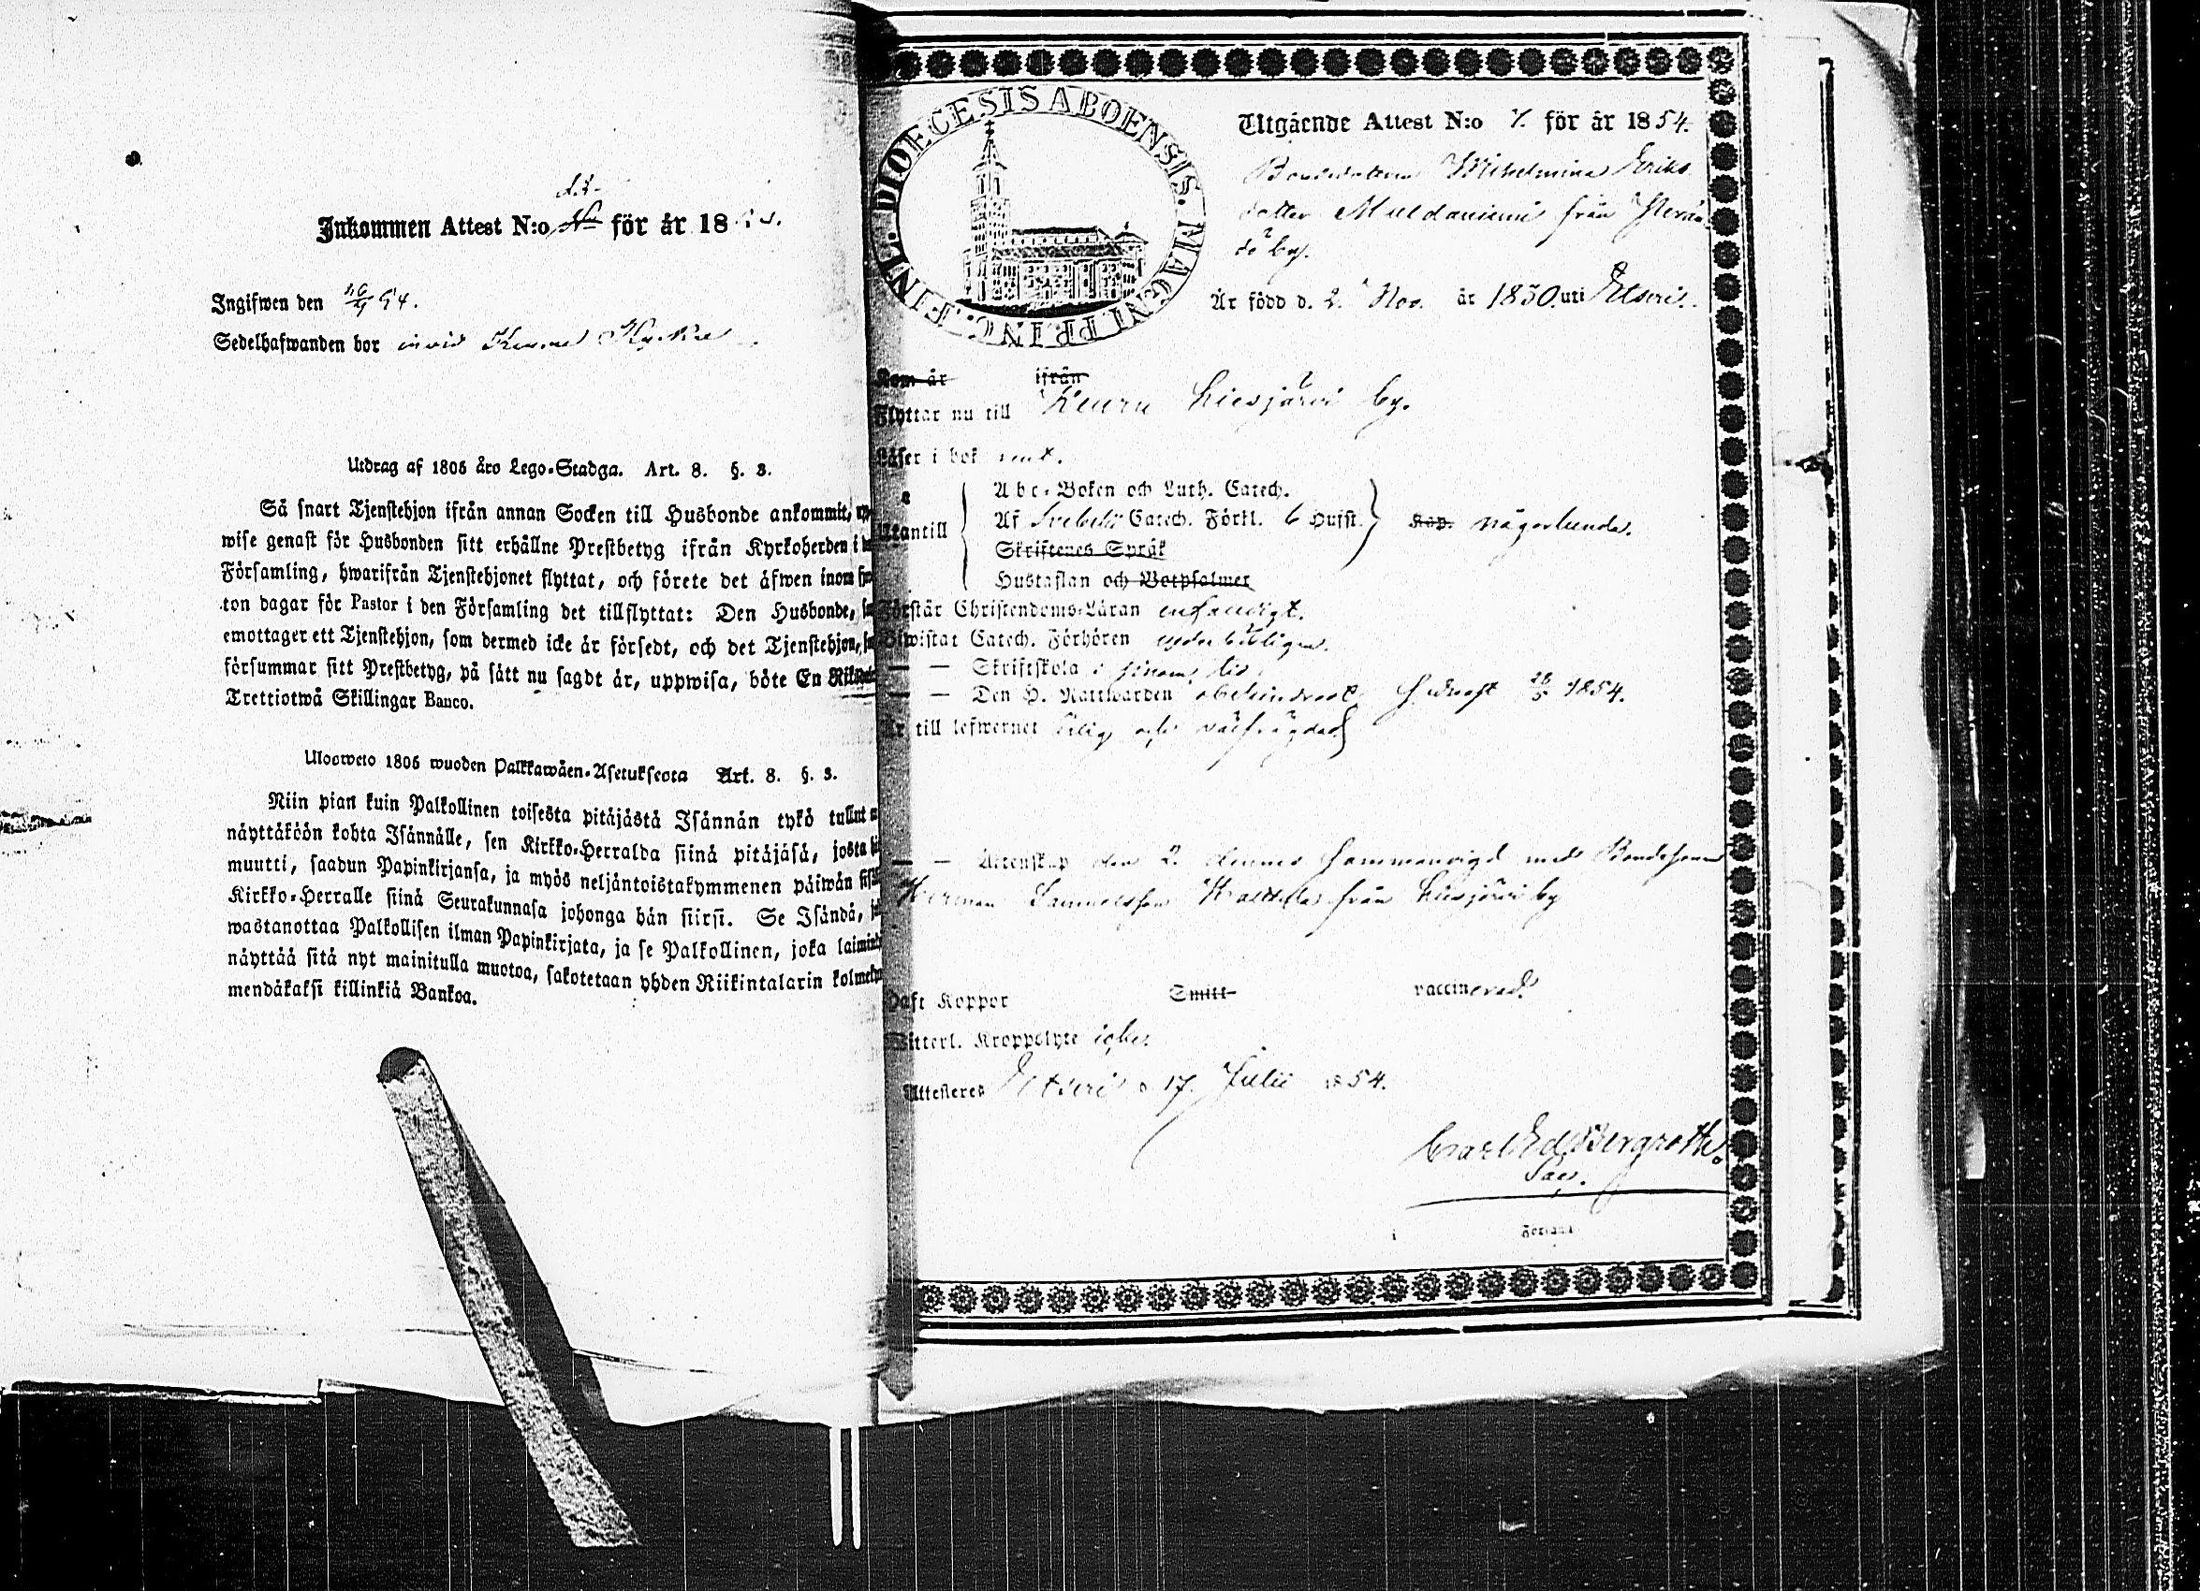 Inkommen Attest N:o för år 18
Ingifwen den
Sedelhafwanden bor
Utdrag af 1805 års Lego-Stadga. Art. 8. §. 3.
Så snart Tjenstehjon ifrån annan Socken till Husbonde ankommit,
wise genast för Husbonden sitt erhållne Prestbetyg ifrån Kyrkoherden i
Församling, hwarifrån Tjenstehjonet flyttat, och förete det äfwen inom
ton dagar för Pastor i den Församling det tillflyttat: Den Husbonde,
emottager ett Tjenstehjon, som dermed icke är försedt, och det Tjenstehjon,
försummar sitt Prestbetyg, på sätt nu sagdt är, uppwisa, böte En
Trettiotwå Skillingar Banco.
Uloswето 1805 wuoden Palkkawäen-Asetuksesta Art. 8. §. 3.
Niin pian kuin Palkollinen toisesta pitäjästä Isännän tykö tullut
näyttäköön kohta Isännälle, sen Kirkko-Herralda siinä pitäjäsä, josta
muutti, saadun Papinkirjansa, ja myös neljäntoistakymmenen päiwän
Kirkko-Herralle siinä Seurakunnasa johonga hän siirsi. Se Isändä,
wastanottaa Palkollisen ilman Papinkirjata, ja se Palkollinen, joka
näyttää sitä nyt mainitulla muotoa, sakotetaan yhden Riikintalarin
mendäkaksi killinkiä Bankoa.
DIOECESIS ABOENSIS. MAGNI PRINC. FINL.
Utgående Attest N:o 7. för år 1854.
Bondedottern Wilhelmina Eriks
dotter Muldaniemi från
by.
Är född d. 2. Nov. år 1830. uti Etseri.
Kom år ifrån
Flyttar nu till Keuru Liesjärvi by.
Läser i bok rent.
Utantill
Abc-Boken och Luth. Catech.
Af Svebelii Catech. Förkl. 6 Hufst. Kap. någorlunda.
Skriftenes Språk
Hustaflan och Botpsalmer
Förstår Christendoms-Läran enfaldigt.
Biwistat Catech. Förhören
— — Skriftskola i sinom tid.
— — Den H. Nattwarden obehindrad, 1854.
Är till lefwernet ärlig och välfrägdad
— — Äktenskap den 2. dennes sammanvigd med Bondesonen
Herman Samuelsson från Liesjärvi by
Haft Koppor Smitt vaccinerad.
Witterl. Kroppslyte icke.
Attesteres Etseri d 17. Julii 1854.
Carl Ed. Bergroth.
Sac.
i